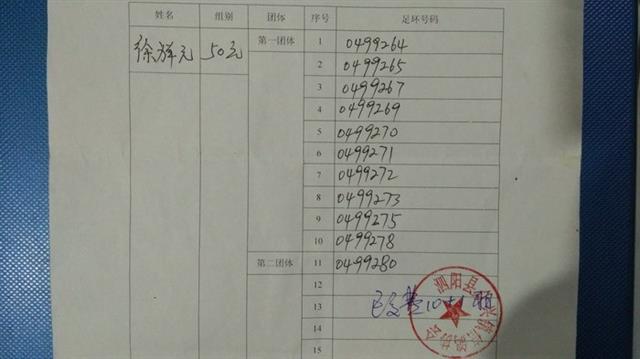 姓名 组别 团体 序号 足环号码
徐祥元 50元 第一团体 1 0499264
2 0499265
3 0499267
4 0499269
5 0499270
6 0499271
7 0499272
8 0499273
9 0499275
10 0499278
第二团体 11 0499280
12
13 已交费10+1
14
15
泗阳县